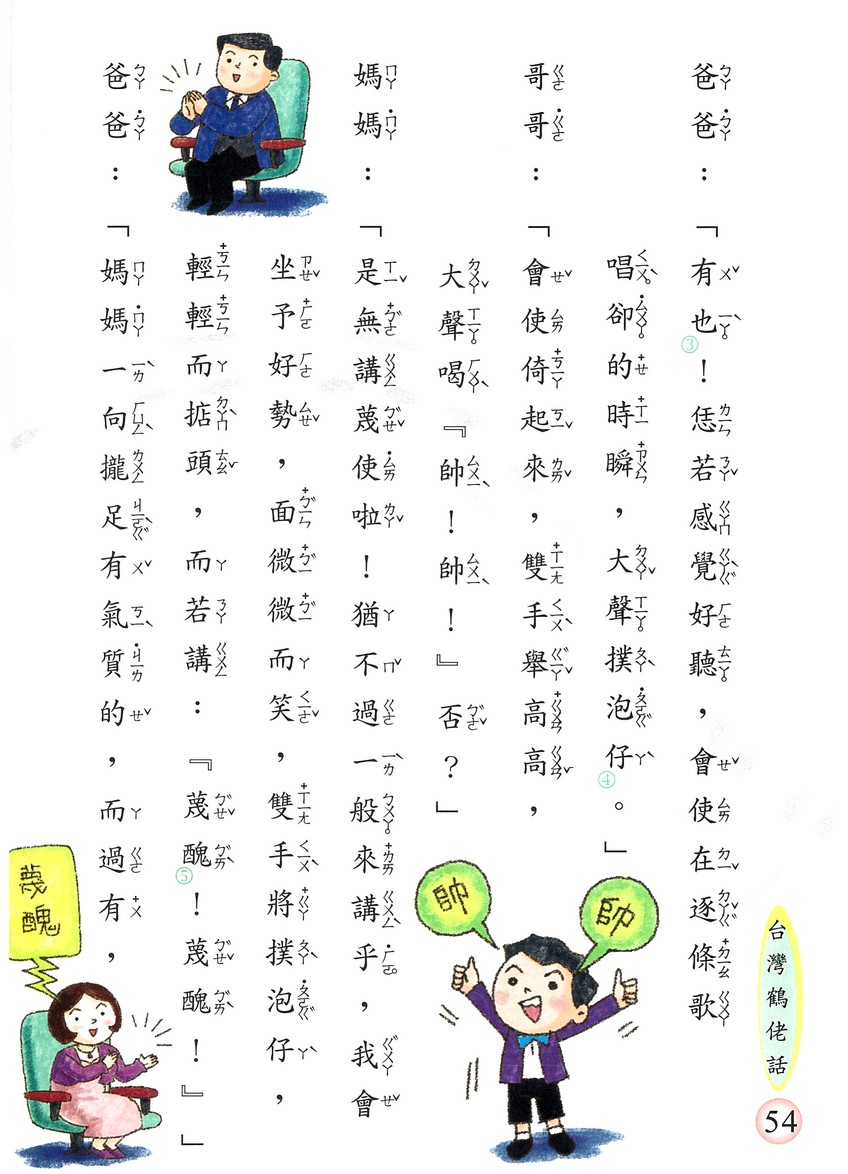 爸爸：「有也③！恁若感覺好聽，會使在逐條歌
唱卻的時瞬，大聲撲泡仔④。」
哥哥：「會使倚起來，雙手舉高高，
大聲喝『帥！帥！』否？」
媽媽：「是無講蔑使啦！猶不過一般來講乎，我會
坐予好勢，面微微而笑，雙手將撲泡仔，
輕輕而掂頭，而若講：『蔑醜⑤！蔑醜！』」
爸爸：「媽媽一向攏足有氣質的，而過有，
帥
帥
蔑醜
台灣鶴佬話
54